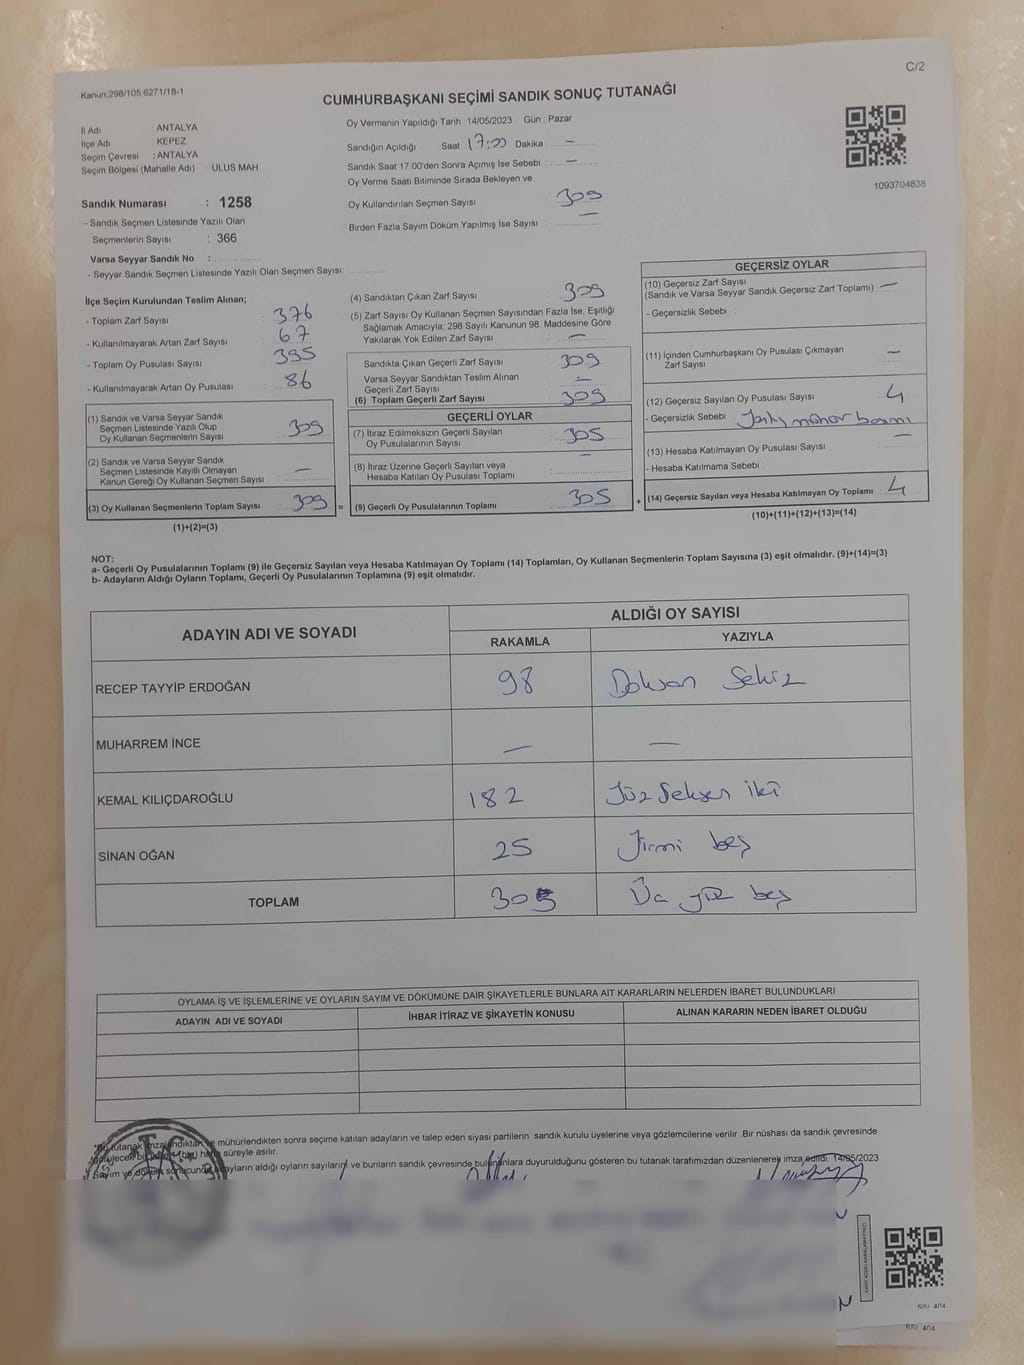 C/2
Kanun:298/105,6271/18-1
CUMHURBAŞKANI SEÇİMİ SANDIK SONUÇ TUTANAĞI
İl Adı : ANTALYA
İlçe Adı : KEPEZ
Seçim Çevresi : ANTALYA
Seçim Bölgesi (Mahalle Adı) : ULUS MAH.
Sandık Numarası : 1258
- Sandık Seçmen Listesinde Yazılı Olan
Seçmenlerin Sayısı : 366
Varsa Seyyar Sandık No :
- Seyyar Sandık Seçmen Listesinde Yazılı Olan Seçmen Sayısı:
Oy Vermenin Yapıldığı Tarih :14/05/2023 Gün : Pazar
Sandığın Açıldığı Saat 17:00 Dakika : —
Sandık Saat 17:00'den Sonra Açımış İse Sebebi : —
Oy Verme Saati Bitiminde Sırada Bekleyen ve
Oy Kullandırılan Seçmen Sayısı : 309
Birden Fazla Sayım Döküm Yapılmış İse Sayısı : —
1093704838
İlçe Seçim Kurulundan Teslim Alınan;
- Toplam Zarf Sayısı : 376
- Kullanılmayarak Artan Zarf Sayısı : 67
- Toplam Oy Pusulası Sayısı : 395
- Kullanılmayarak Artan Oy Pusulası : 86
(1) Sandık ve Varsa Seyyar Sandık
Seçmen Listesinde Yazılı Olup
Oy Kullanan Seçmenlerin Sayısı : 309
(2) Sandık ve Varsa Seyyar Sandık
Seçmen Listesinde Kayıtlı Olmayan
Kanun Gereği Oy Kullanan Seçmen Sayısı : —
(3) Oy Kullanan Seçmenlerin Toplam Sayısı : 309 =
(1)+(2)=(3)
(4) Sandıktan Çıkan Zarf Sayısı : 309
(5) Zarf Sayısı Oy Kullanan Seçmen Sayısından Fazla İse, Eşitliği
Sağlamak Amacıyla; 298 Sayılı Kanunun 98. Maddesine Göre
Yakılarak Yok Edilen Zarf Sayısı : —
Sandıkta Çıkan Geçerli Zarf Sayısı : 309
Varsa Seyyar Sandıktan Teslim Alınan
Geçerli Zarf Sayısı : —
(6) Toplam Geçerli Zarf Sayısı : 309
GEÇERLİ OYLAR
(7) İtiraz Edilmeksizin Geçerli Sayılan
Oy Pusulalarının Sayısı : 305
(8) İtiraz Üzerine Geçerli Sayılan veya
Hesaba Katılan Oy Pusulası Toplamı : —
(9) Geçerli Oy Pusulalarının Toplamı : 305 +
GEÇERSİZ OYLAR
(10) Geçersiz Zarf Sayısı
(Sandık ve Varsa Seyyar Sandık Geçersiz Zarf Toplamı) : —
- Geçersizlik Sebebi :
(11) İçinden Cumhurbaşkanı Oy Pusulası Çıkmayan
Zarf Sayısı : —
(12) Geçersiz Sayılan Oy Pusulası Sayısı : 4
- Geçersizlik Sebebi :
(13) Hesaba Katılmayan Oy Pusulası Sayısı : —
- Hesaba Katılmama Sebebi :
(14) Geçersiz Sayılan veya Hesaba Katılmayan Oy Toplamı : 4
(10)+(11)+(12)+(13)=(14)
NOT:
a- Geçerli Oy Pusulalarının Toplamı (9) ile Geçersiz Sayılan veya Hesaba Katılmayan Oy Toplamı (14) Toplamları, Oy Kullanan Seçmenlerin Toplam Sayısına (3) eşit olmalıdır. (9)+(14)=(3)
b- Adayların Aldığı Oyların Toplamı, Geçerli Oy Pusulalarının Toplamına (9) eşit olmalıdır.
ADAYIN ADI VE SOYADI
ALDIĞI OY SAYISI
RAKAMLA YAZIYLA
RECEP TAYYİP ERDOĞAN 98 Doksan Sekiz
MUHARREM İNCE — —
KEMAL KILIÇDAROĞLU 182 Yüz Seksen iki
SİNAN OĞAN 25 Yirmi beş
TOPLAM 305 Üç yüz beş
OYLAMA İŞ VE İŞLEMLERİNE VE OYLARIN SAYIM VE DÖKÜMÜNE DAİR ŞİKAYETLERLE BUNLARA AİT KARARLARIN NELERDEN İBARET BULUNDUKLARI
ADAYIN ADI VE SOYADI İHBAR İTİRAZ VE ŞİKAYETİN KONUSU ALINAN KARARIN NEDEN İBARET OLDUĞU
tutanak imzalandıktan ve mühürlendikten sonra seçime katılan adayların ve talep eden siyasi partilerin sandık kurulu üyelerine veya gözlemcilerine verilir. Bir nüshası da sandık çevresinde
süreyle asılır.
Sayım ve döküm sonucunda adayların aldığı oyların sayılarını ve bunların sandık çevresinde bulunanlara duyurulduğunu gösteren bu tutanak tarafımızdan düzenlenerek imza edildi. 14/05/2023
SSI. 404
SSI. 404